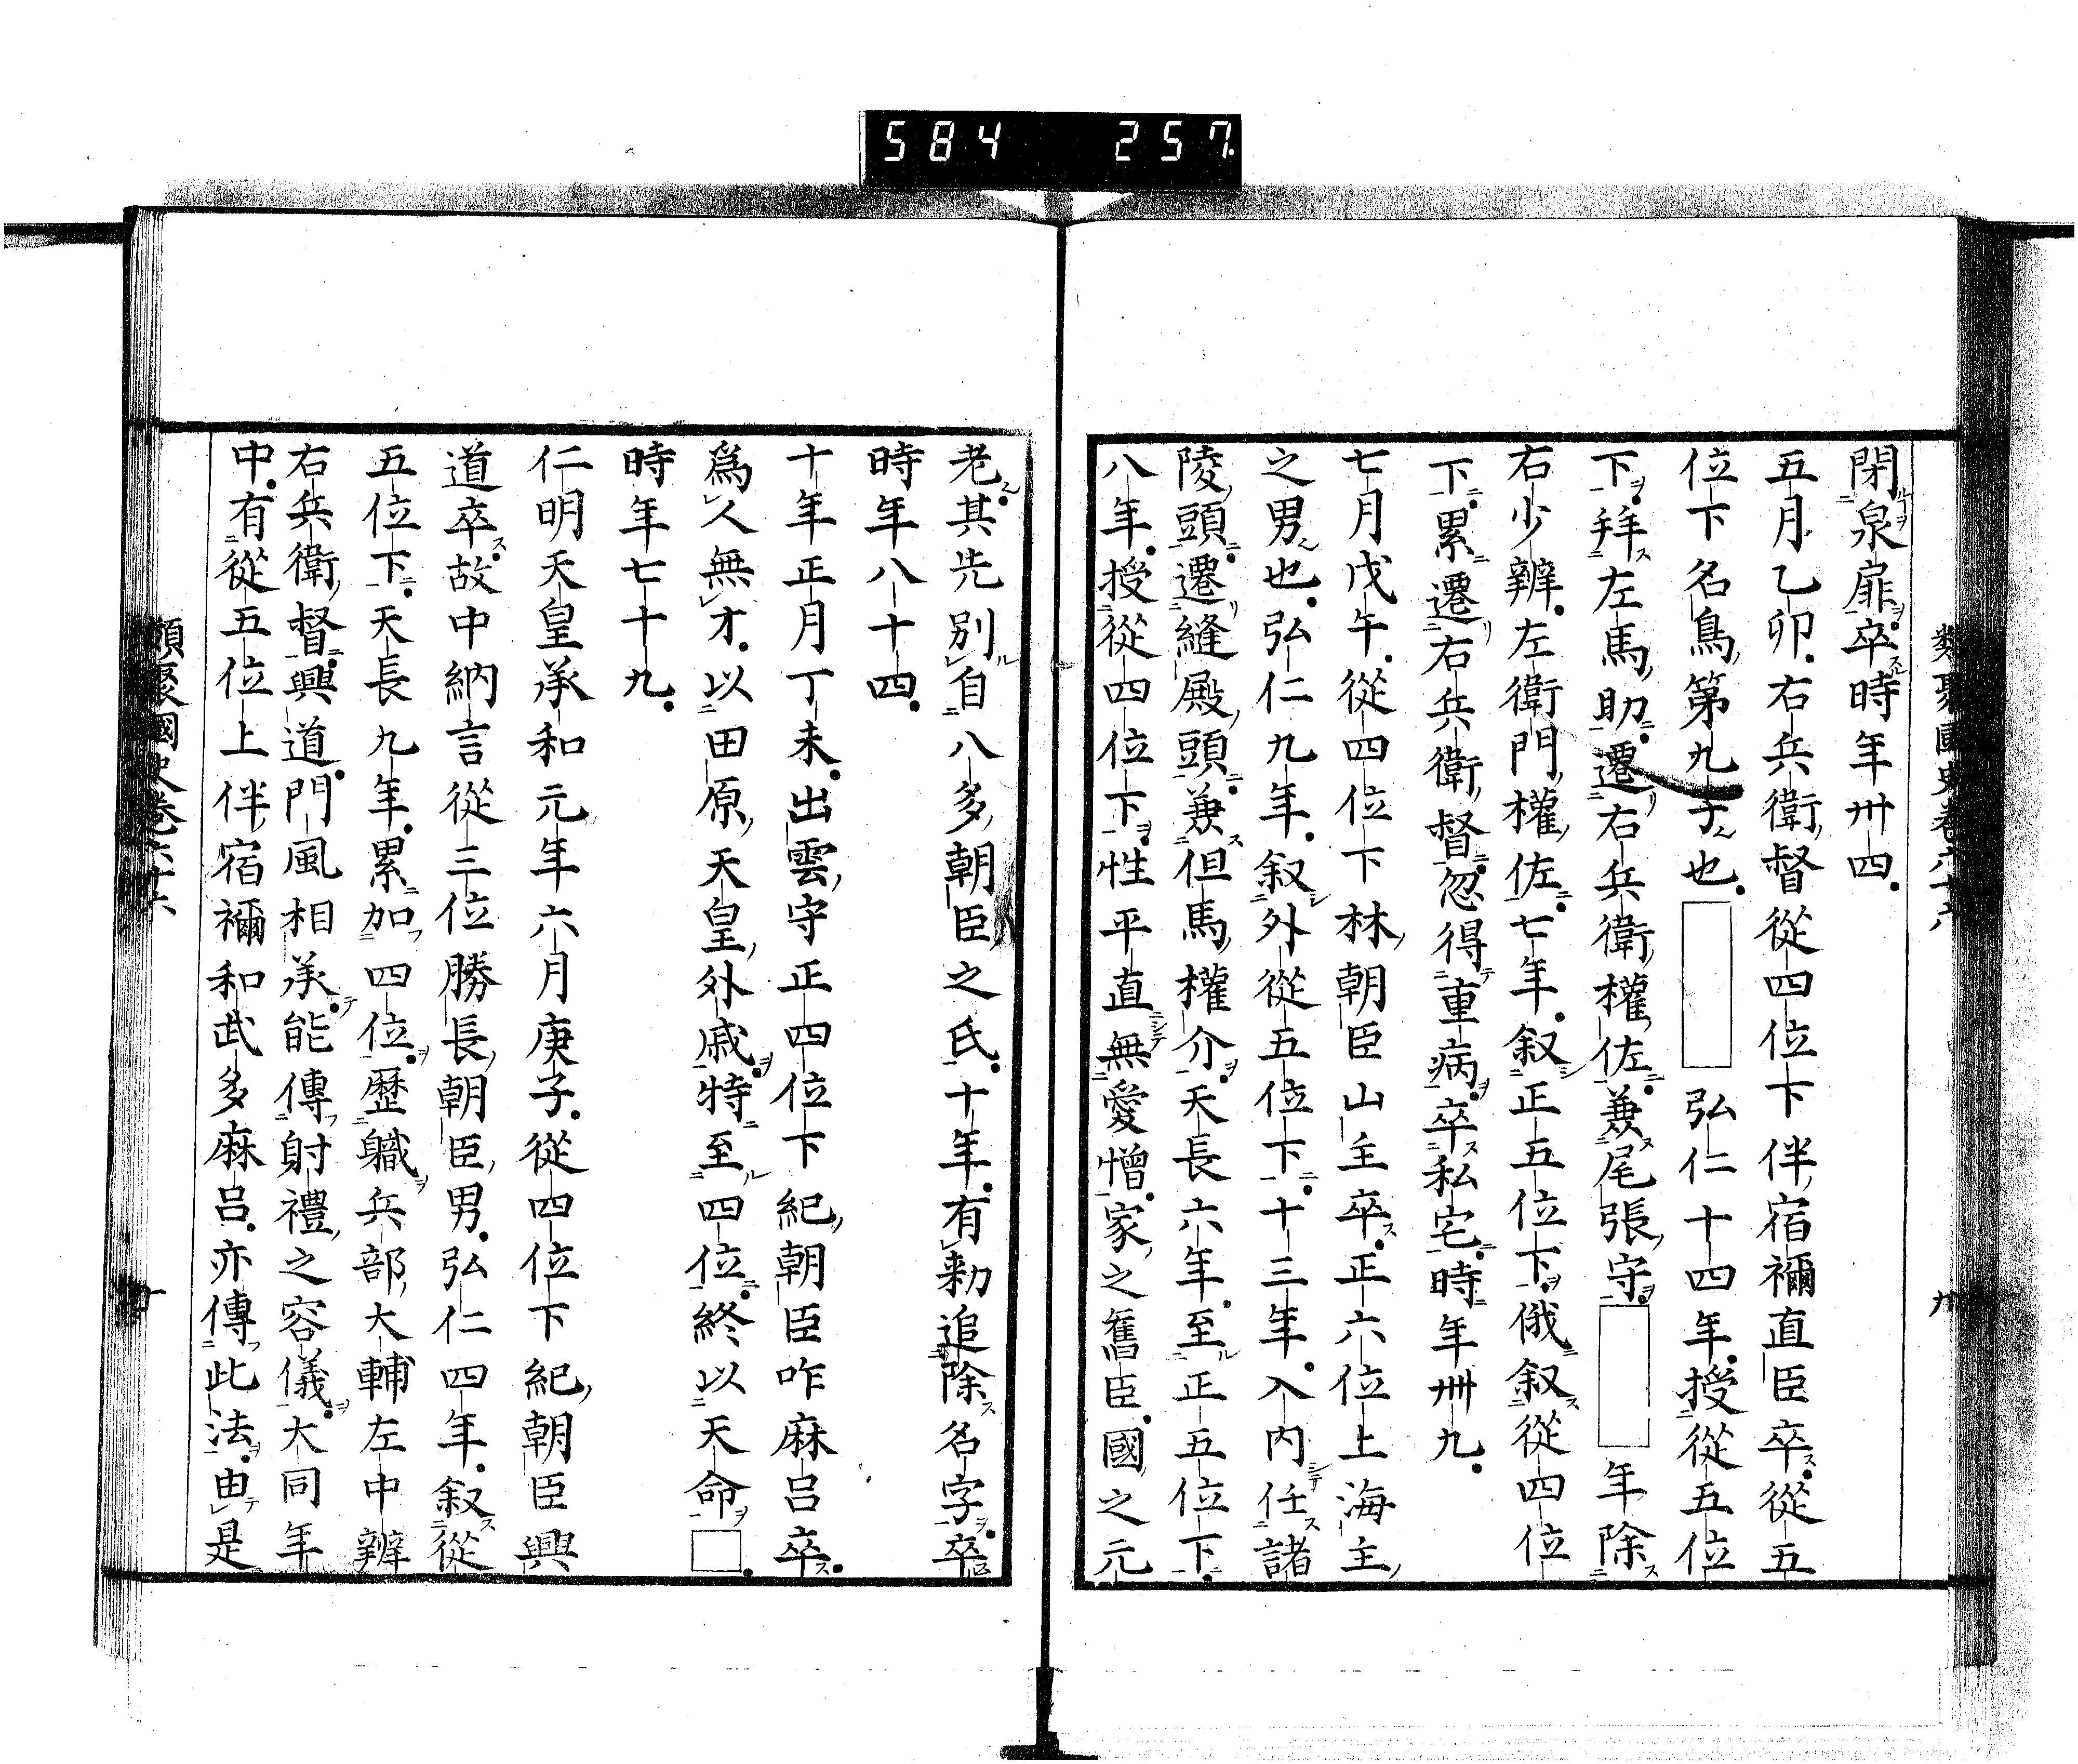 584 257
類聚國史卷六十六 九
閉泉扉卒時年卅四
五月乙卯右兵衛督從四位下伴宿禰直臣卒從五
位下名鳥第九子也□弘仁十四年授從五位
下拜左馬助遷右兵衛權佐兼尾張守□年除
右少辨左衛門權佐七年叙正五位下俄叙從四位
下累遷右兵衛督忽得重病卒私宅時年卌九
七月戊午從四位下林朝臣山主卒正六位上海主
之男也弘仁九年叙外從五位下十三年入内任諸
陵頭遷縫殿頭兼但馬權介天長六年至正五位下
八年授從四位下性平直無愛憎家之舊臣國之元
老其先別自八多朝臣之氏十年有勅追除名字卒
時年八十四
十年正月丁未出雲守正四位下紀朝臣咋麻呂卒
爲人無才以田原天皇外戚特至四位終以天命□
時年七十九
仁明天皇承和元年六月庚子從四位下紀朝臣興
道卒故中納言從三位勝長朝臣男弘仁四年叙從
五位下天長九年累加四位歷職兵部大輔左中辨
右兵衛督興道門風相承能傳射禮之容儀大同年
中有從五位上伴宿禰和武多麻呂亦傳此法由是
類聚國史卷六十六